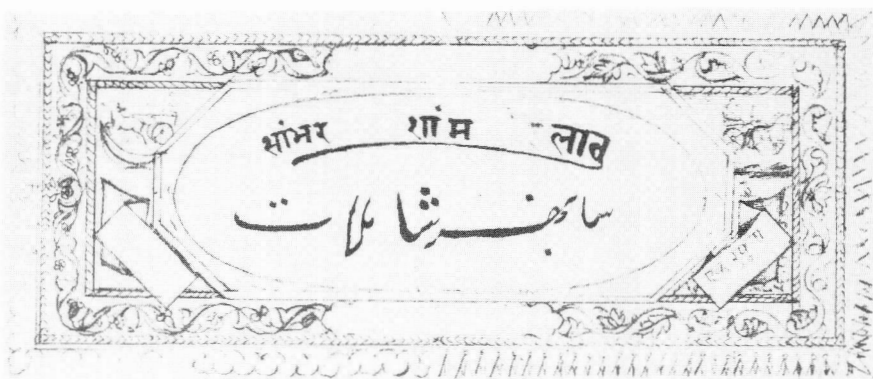 सांभर शांम लात
سانبھر شاملات